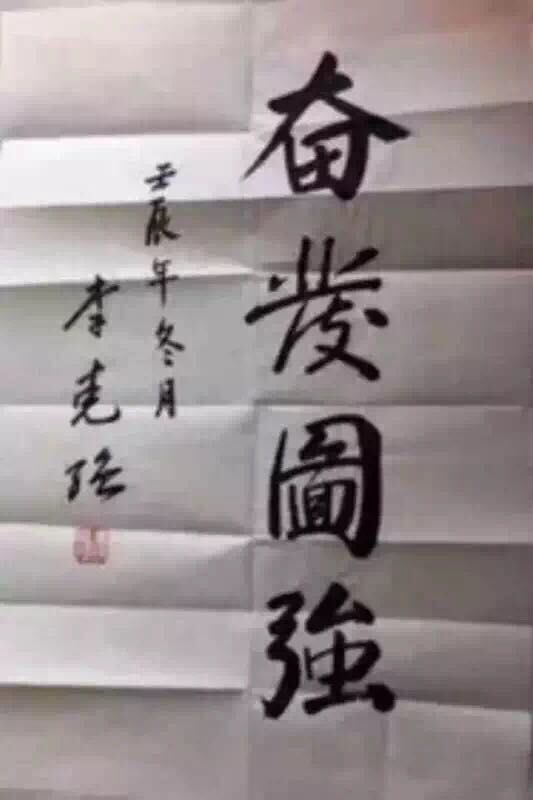 奋發圖強
壬辰年冬月
李克强